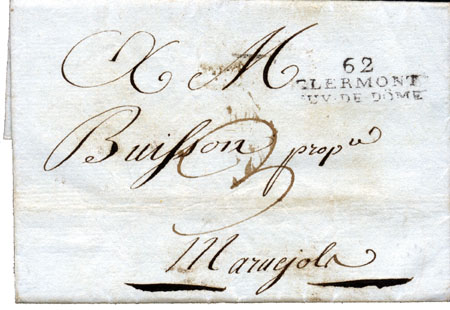 A M
62
CLERMONT
PUY-DE-DÔME
Buisson prop.re
Maruejols